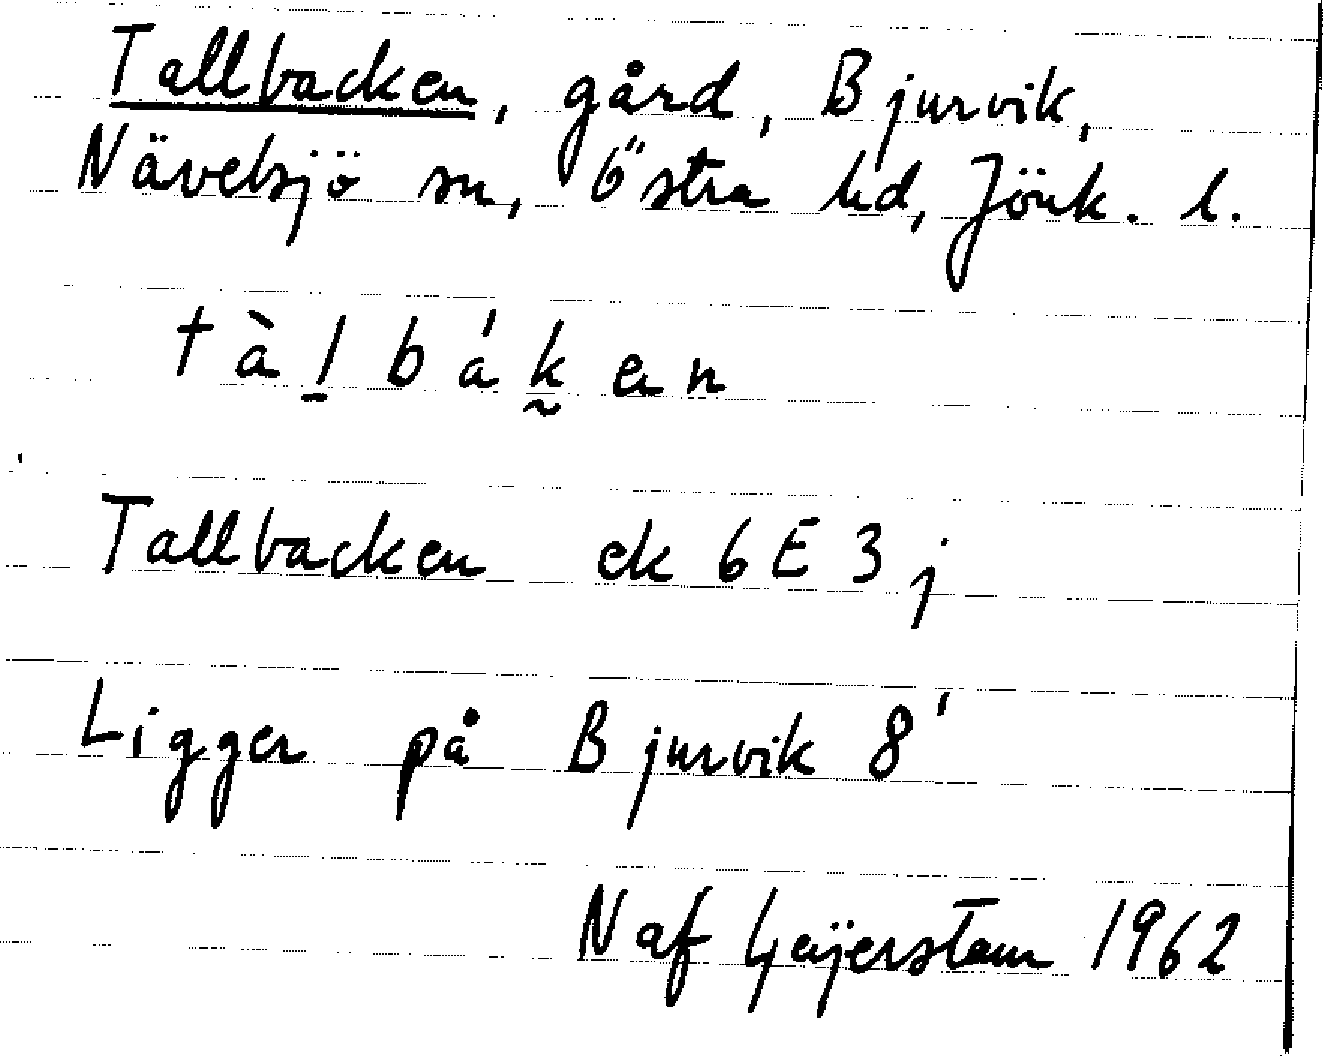 Tallbacken, gård, Bjurvik,
Nävelsjö sn, Östra hd, Jönk. l.
tàl̲bák̰en
Tallbacken ek 6E3j
Ligger på Bjurvik 8'
N af Geijerstam 1962